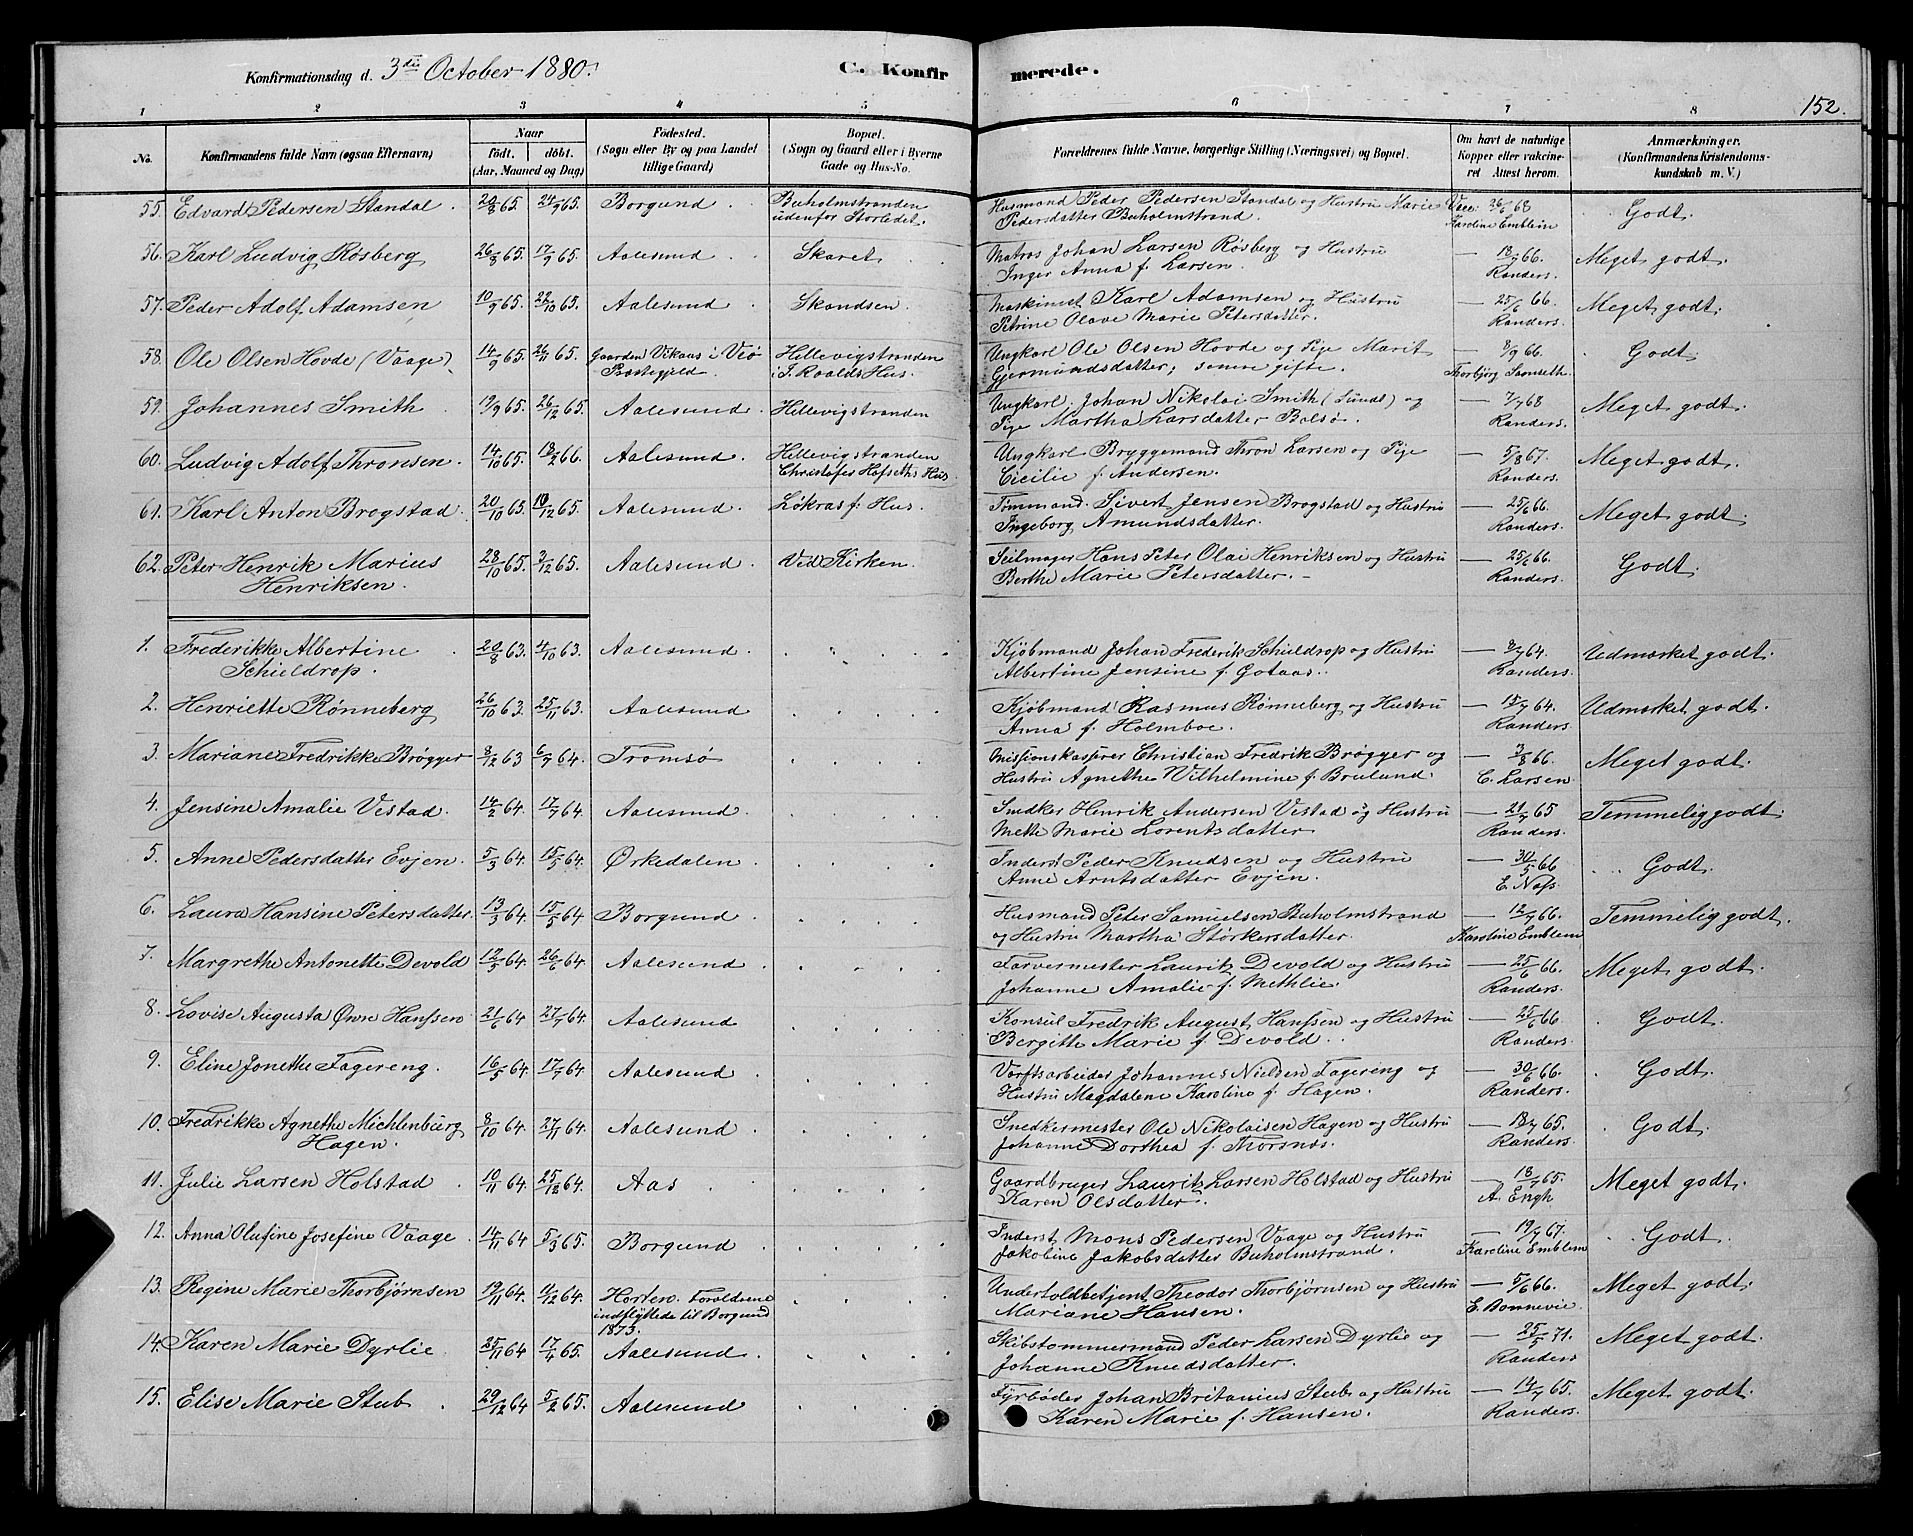 Konfirmationsdag d. 3die October 1880. C. Konfirmerede. 152.
1 2 3 4 5 6 7 8
No. Konfirmandens fulde Navn (ogsaa Efternavn) Naar født. døbt. (Aar, Maaned og Dag) Fødested. (Sogn eller By og paa Landet tillige Gaard) Bopæl. (Sogn og Gaard eller i Byerne Gade og Hus-No. Forældrenes fulde Navne, borgerlige Stilling (Næringsvei) og Bopæl. Om havt de naturlige Kopper eller vakcineret Attest herom. Anmærkninger. (Konfirmandens Kristendomskundskab m. V.)
55. Edvard Pedersen Standal. 20/8 65. 24/9 65. Borgund Buholmstranden udenfor Storledet. Husmand Peder Pedersen Standal og Hustru Marie Pedersdatter Buholmstrand. Vacc. 26/6 68 Karoline Emblem Godt.
56. Karl Ludvig Røsberg 26/8 65. 17/9 65. Aalesund Skaret Matros Johan Larsen Røsberg og Hustru Inger Anna f. Larsen. — 13/7 66. Randers. Meget godt.
57. Peder Adolf Adamsen 10/9 65. 22/10 65. Aalesund Skandsen. Maskinist Karl Adamsen og Hustru Petrine Olave Marie Petersdatter. — 25/6 66. Randers. Meget godt.
58. Ole Olsen Hovde (Vaage). 14/9 65. 26/11 65. Gaarden Vikaas i Veø Præstegjeld. Hellevigstranden i I. Roalds Hus. Ungkarl Ole Olsen Hovde og Pige Marit Gjermundsdatter; senere gifte. — 8/9 66. Thorbjørg Samseth. Godt
59. Johannes Smith 19/9 65. 26/12 65. Aalesund. Hellevigstranden Ungkarl Johan Nikolai Smith (Lunde) og Pige Martha Larsdatter Bolsø. — 7/7 68 Randers. Meget godt.
60. Ludvig Adolf Thronsen. 14/10 65. 18/2 66. Aalesund. Hellevigstranden Christofer Hofseths Hus. Ungkarl Bryggemand Thron Larsen og Pige Cicilie f. Andersen. — 5/8 67. Randers. Meget godt.
61. Karl Anton Brogstad. 20/10 65. 10/12 65. Aalesund. Løkras f. Hus. Tømmand. Sivert Jensen Brogstad og Hustru Ingeborg Amundsdatter. — 25/6 66. Randers. Meget godt.
62. Peter Henrik Marius Henriksen. 28/10 65. 3/12 65. Aalesund. Ved Kirken. Seilmager Hans Peter Olai Henriksen og Hustru Berthe Marie Petersdatter. — 25/6 66. Randers. Godt.
1. Frederikke Albertine Schieldrop. 20/8 63. 4/10 63. Aalesund. Kjøbmand Johan Frederik Schieldrop og Hustru Albertine Jensine f. Gotaas. — 8/7 64. Randers. Udmærket godt.
2. Henriette Rønneberg 26/10 63. 25/11 63. Aalesund Kjøbmand Rasmus Rønneberg og Hustru Anna f. Holmboe. — 15/7 64. Randers. Udmærket godt.
3. Mariane Fredrikke Brøgger 8/12 63 6/7 64. Tromsø Missionskasserer Christian Fredrik Brøgger og Hustru Agnethe Wilhelmine f. Bruland. — 3/8 66. C. Larsen Meget godt.
4. Jensine Amalie Vestad. 14/2 64. 17/7 64. Aalesund Snedker Henrik Andersen Vestad og Hustru Mette Marie Lorentsdatter — 21/7 65 Randers. Temmelig godt.
5. Anne Pedersdatter Evjen. 5/3 64. 15/5 64. Ørkedalen Inderst Peder Knudsen og Hustru Anne Arntsdatter Evjen. — 30/5 66 E. Næss Godt.
6. Laura Hansine Petersdatter. 13/3 64. 15/5 64 Borgund Husmand Peter Samuelsen Buholmstrand og Hustru Martha Størkersdatter. — 12/7 66. Karoline Emblem Temmelig godt.
7. Margrethe Antonette Devold 12/5 64. 26/6 64 Aalesund Farvermester Lauritz Devold og Hustru Johanne Amalie f. Methlie. — 25/6 66. Randers. Meget godt.
8. Lovise Augusta Øwre Hanssen 21/6 64 27/7 64. Aalesund Konsul Fredrik August Hanssen og Hustru Bergitte Marie f. Devold. — 25/6 66. Randers. Godt.
9. Eline Jonethe Fagereng. 16/5 64. 17/7 64. Aalesund Værftsarbeider Johannes Nielsen Fagereng og Hustru Magdalene Karoline f. Hagen. — 30/6 66. Randers. Godt.
10. Fredrikke Agnethe Michlenburg Hagen. 8/10 64. 27/11 64. Aalesund Snedkermester Ole Nikolaisen Hagen og Hustru Johanne Dorthea f. Thorsnes. — 18/7 65. Randers. Godt.
11. Julie Larsen Holstad 10/11 64. 25/12 64. Aas Gaardbruger Lauritz Larsen Holstad og Hustru Karen Olsdatter. — 18/7 65. A. Engh Meget godt.
12. Anna Olufine Josefine Vaage. 14/11 64 5/3 65. Borgund Inderst Mons Pedersen Vaage og Hustru Jakobine Jakobsdatter Buholmstrand. — 19/7 67. Karoline Emblem Godt.
13. Regine Marie Thorbjørnsen 19/11 64. 4/12 64. Horten. Forældrene indflyttede til Borgund 1873. Undertoldbetjent Theodor Thorbjørnsen og Hustru Mariane Hansen. — 5/6 66. E. Bonnevie. Meget godt.
14. Karen Marie Dyrlie. 25/11 64 17/4 65. Aalesund Skibstømmermand Peder Larsen Dyrlie og Johanne Knudsdatter. — 25/5 71. Randers Meget godt.
15. Elise Marie Stub 29/12 64 5/2 65. Aalesund Fyrbøder Johan Britanius Stub og Hustru Karen Marie f. Hansen. — 14/7 65. Randers. Meget godt.